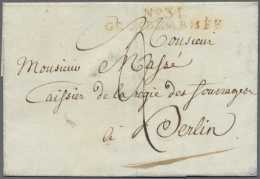 No. 37
GRANDE ARMÉE
Monsieur
Monsieur Massé
Caissier de la regie des fourrages
à Berlin